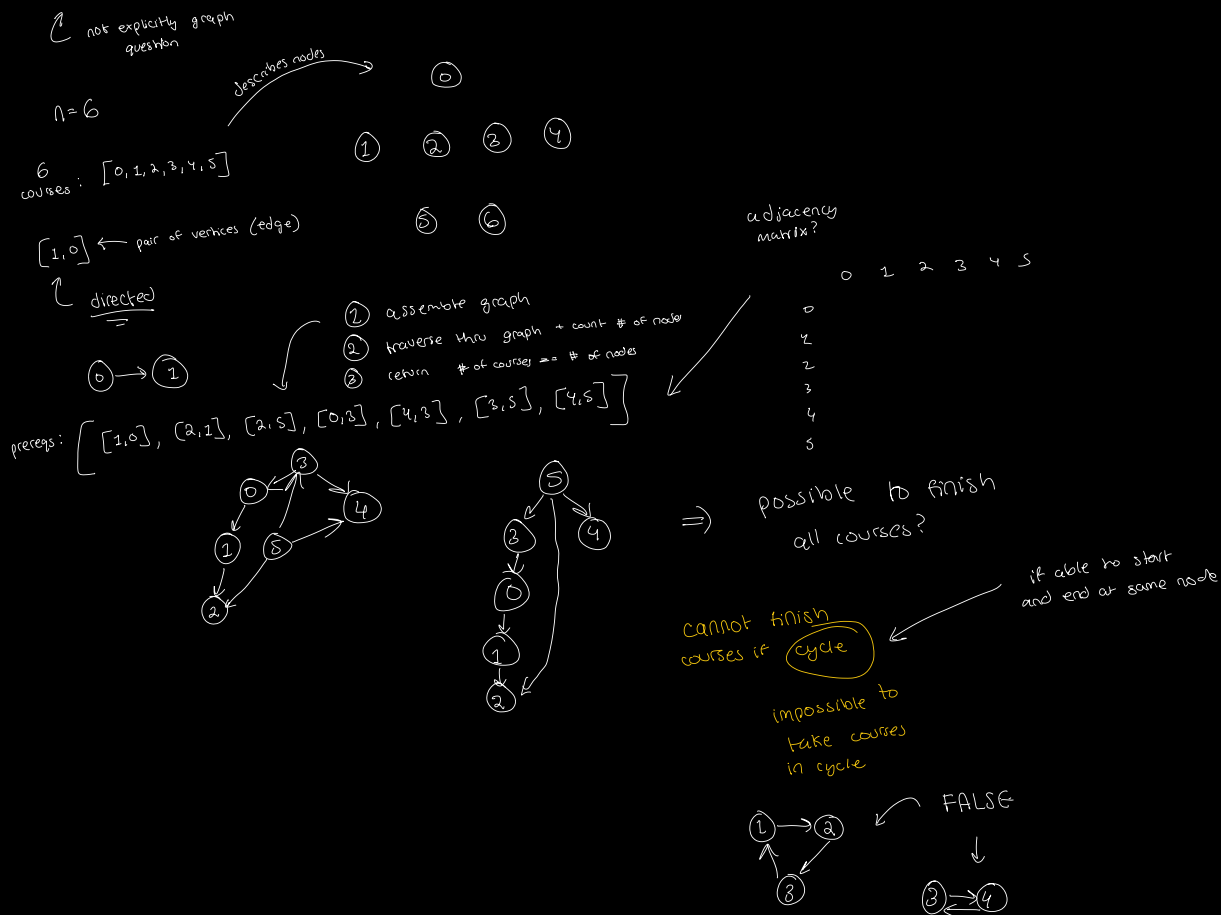 not explicitly graph
question
describes nodes
n=6
6
courses: [0,1,2,3,4,5]
[1,0] ← pair of vertices (edge)
directed
0 → 1
0
1 2 3 4
5 6
1 assemble graph
2 traverse thru graph + count # of nodes
3 return # of courses == # of nodes
prereqs: [[1,0], [2,1], [2,5], [0,3], [4,3], [3,5], [4,5]]
adjacency
matrix?
0 1 2 3 4 5
0
1
2
3
4
5
3
0
4
1 5
2
5
3 4
0
1
2
⇒ possible to finish
all courses?
if able to start
and end at same node
cannot finish
courses if cycle
impossible to
take courses
in cycle
FALSE
1 → 2
3
3 4